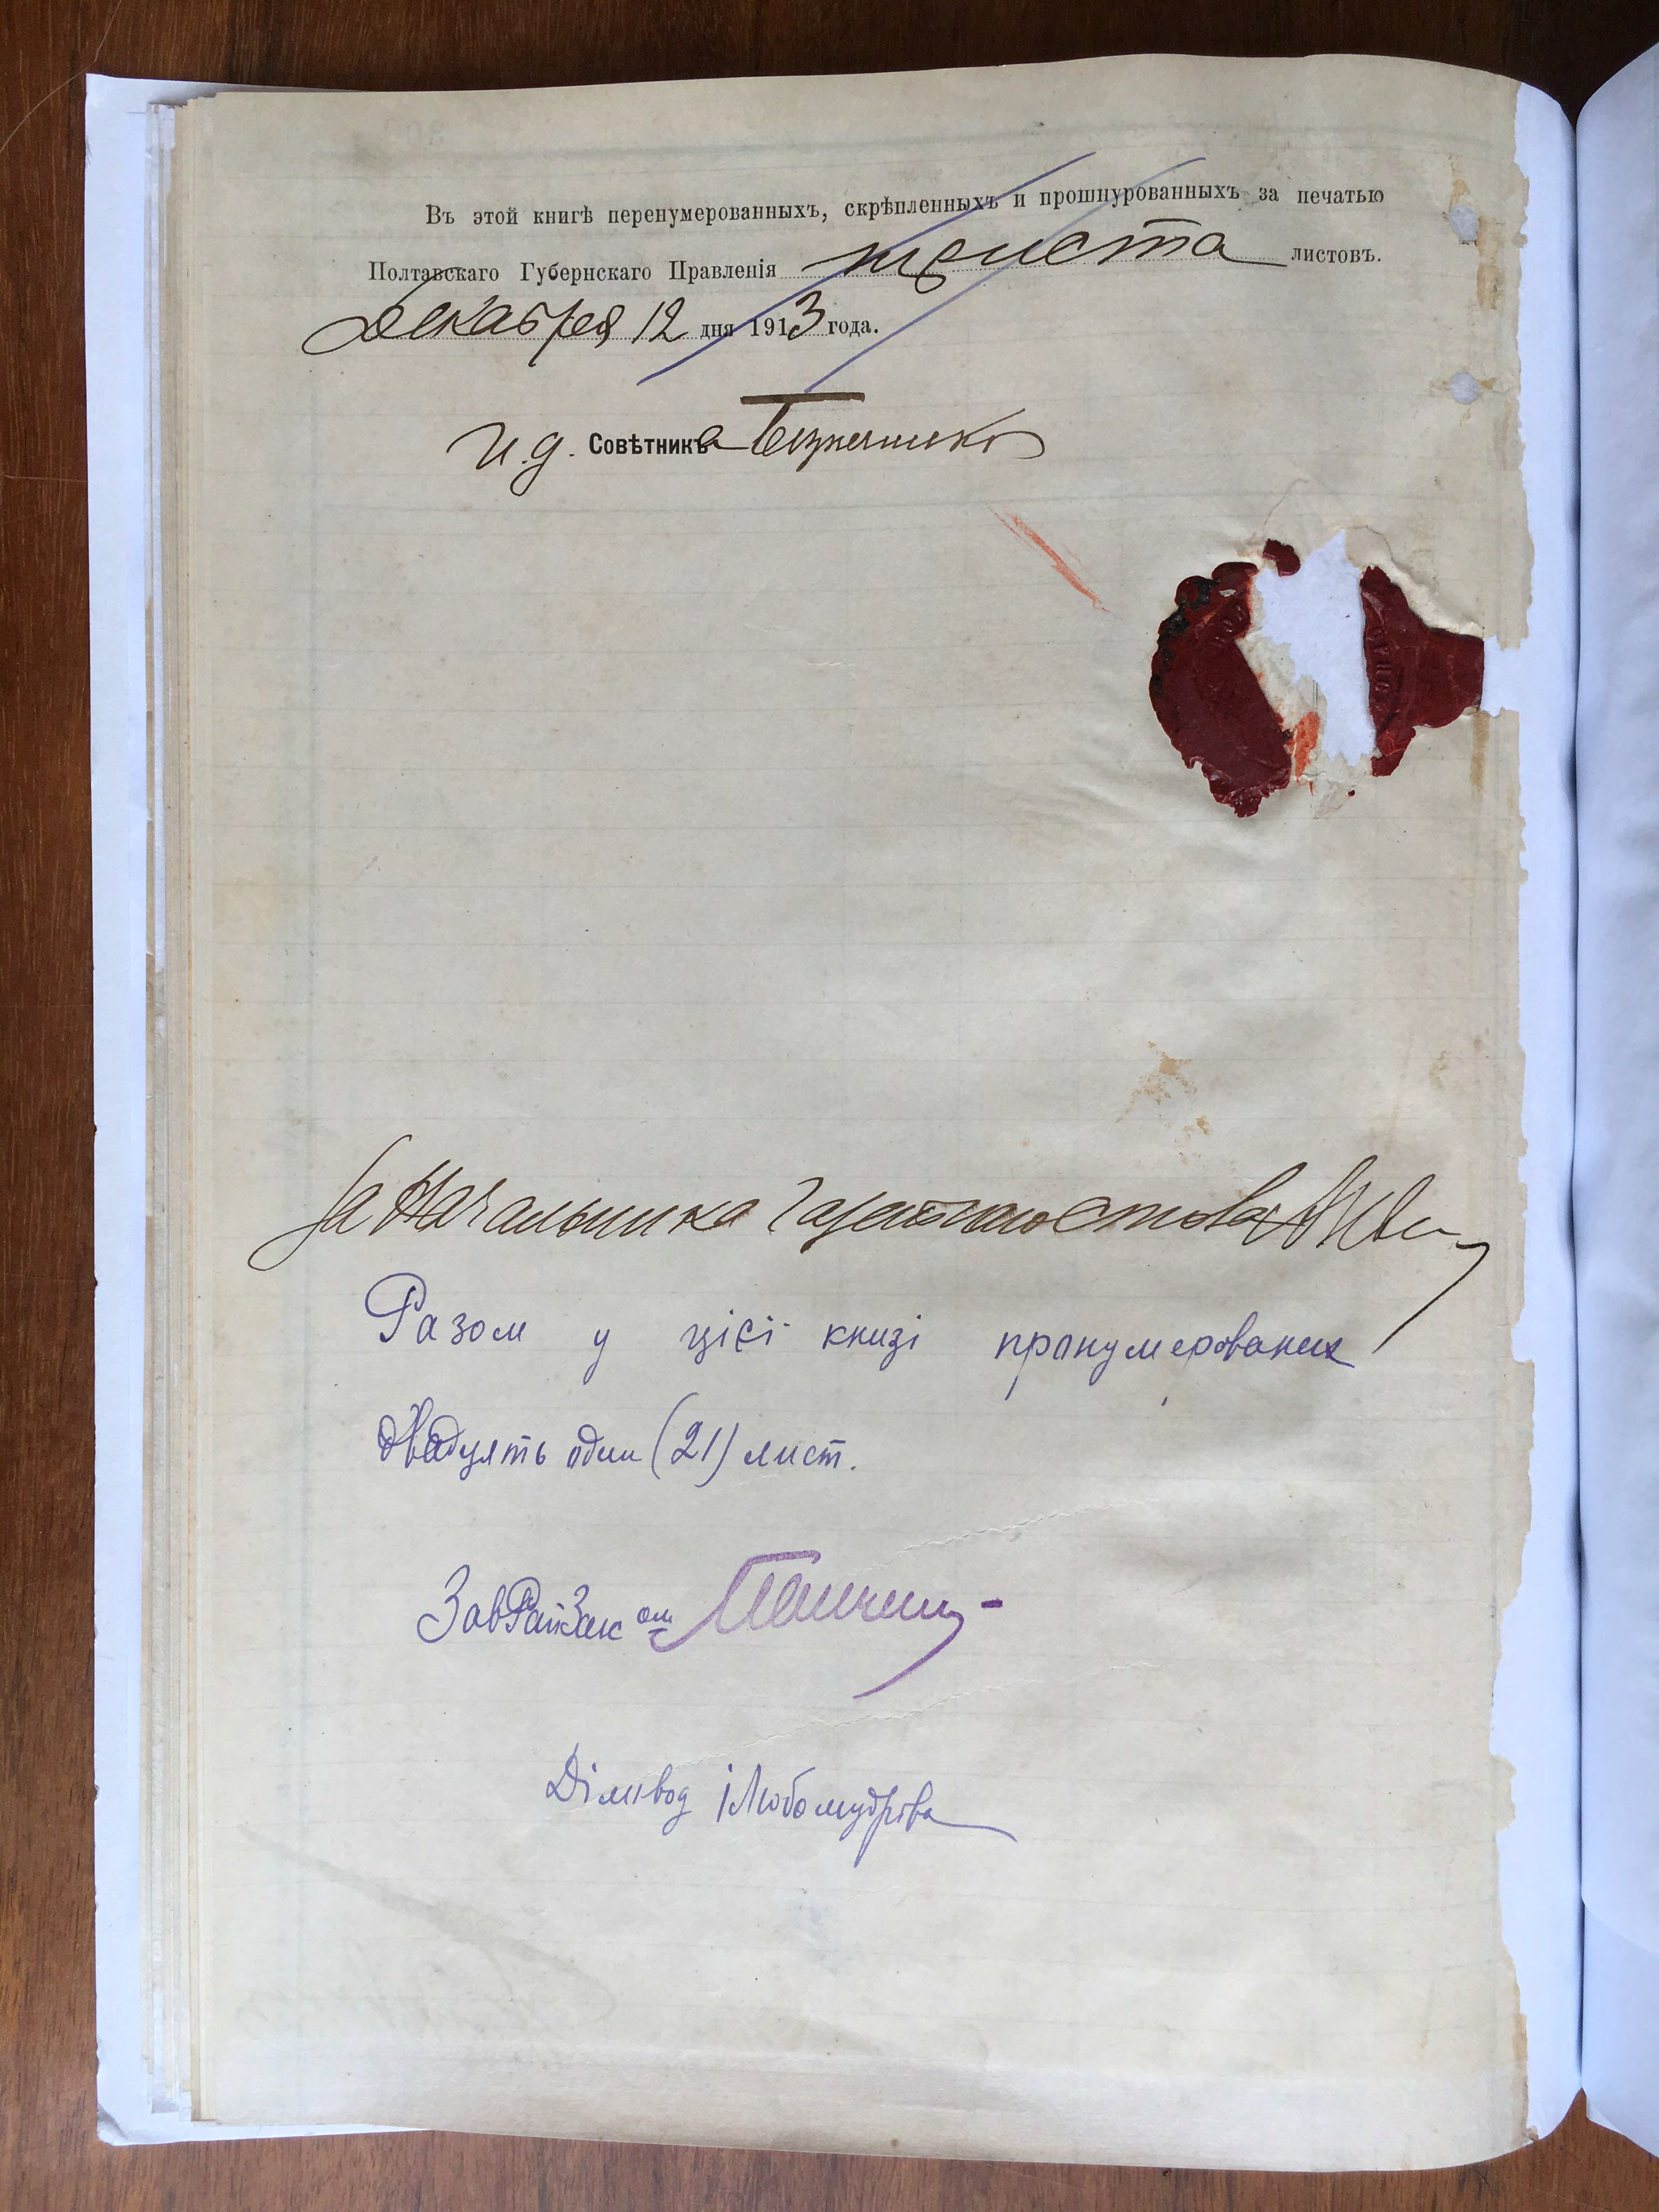 Въ этой книгѣ перенумерованныхъ, скрѣпленныхъ и прошнурованныхъ за печатью
Полтавскаго Губернскаго Правленія триста листовъ.
Декабря 12 дня 1913 года.
И.д. Совѣтника
За Начальника
Разом у цієї книзі пронумерованих
двадцять один (21) лист.
ЗавРай
Діловод Любомудрова